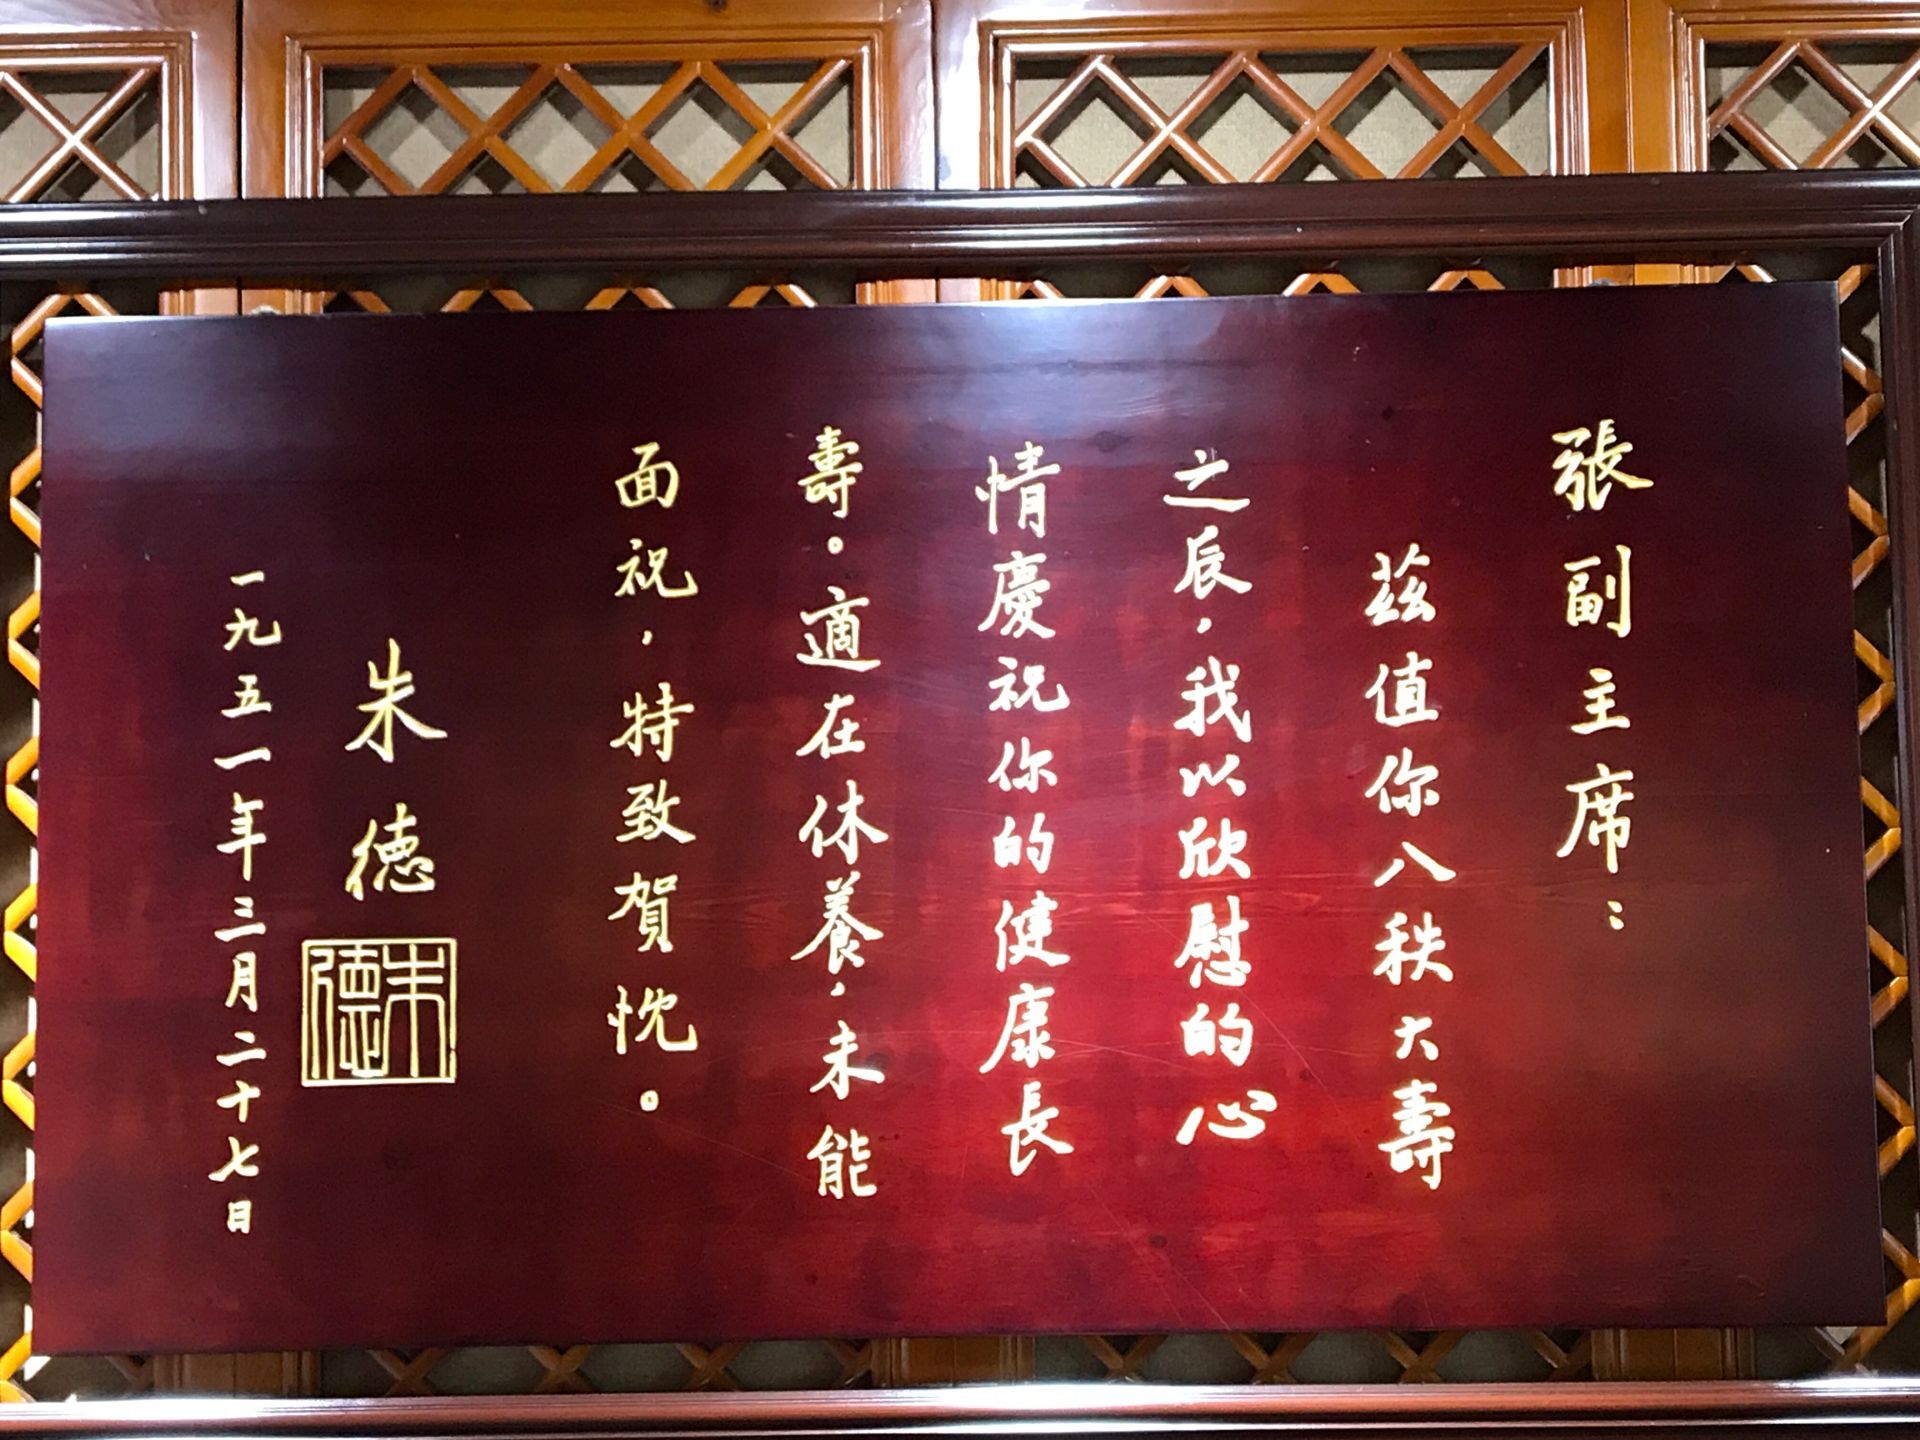 張副主席：
茲值你八秩大壽
之辰，我以欣慰的心
情慶祝你的健康長
壽。適在休養，未能
面祝，特致賀忱。
朱德
朱德
一九五一年三月二十七日